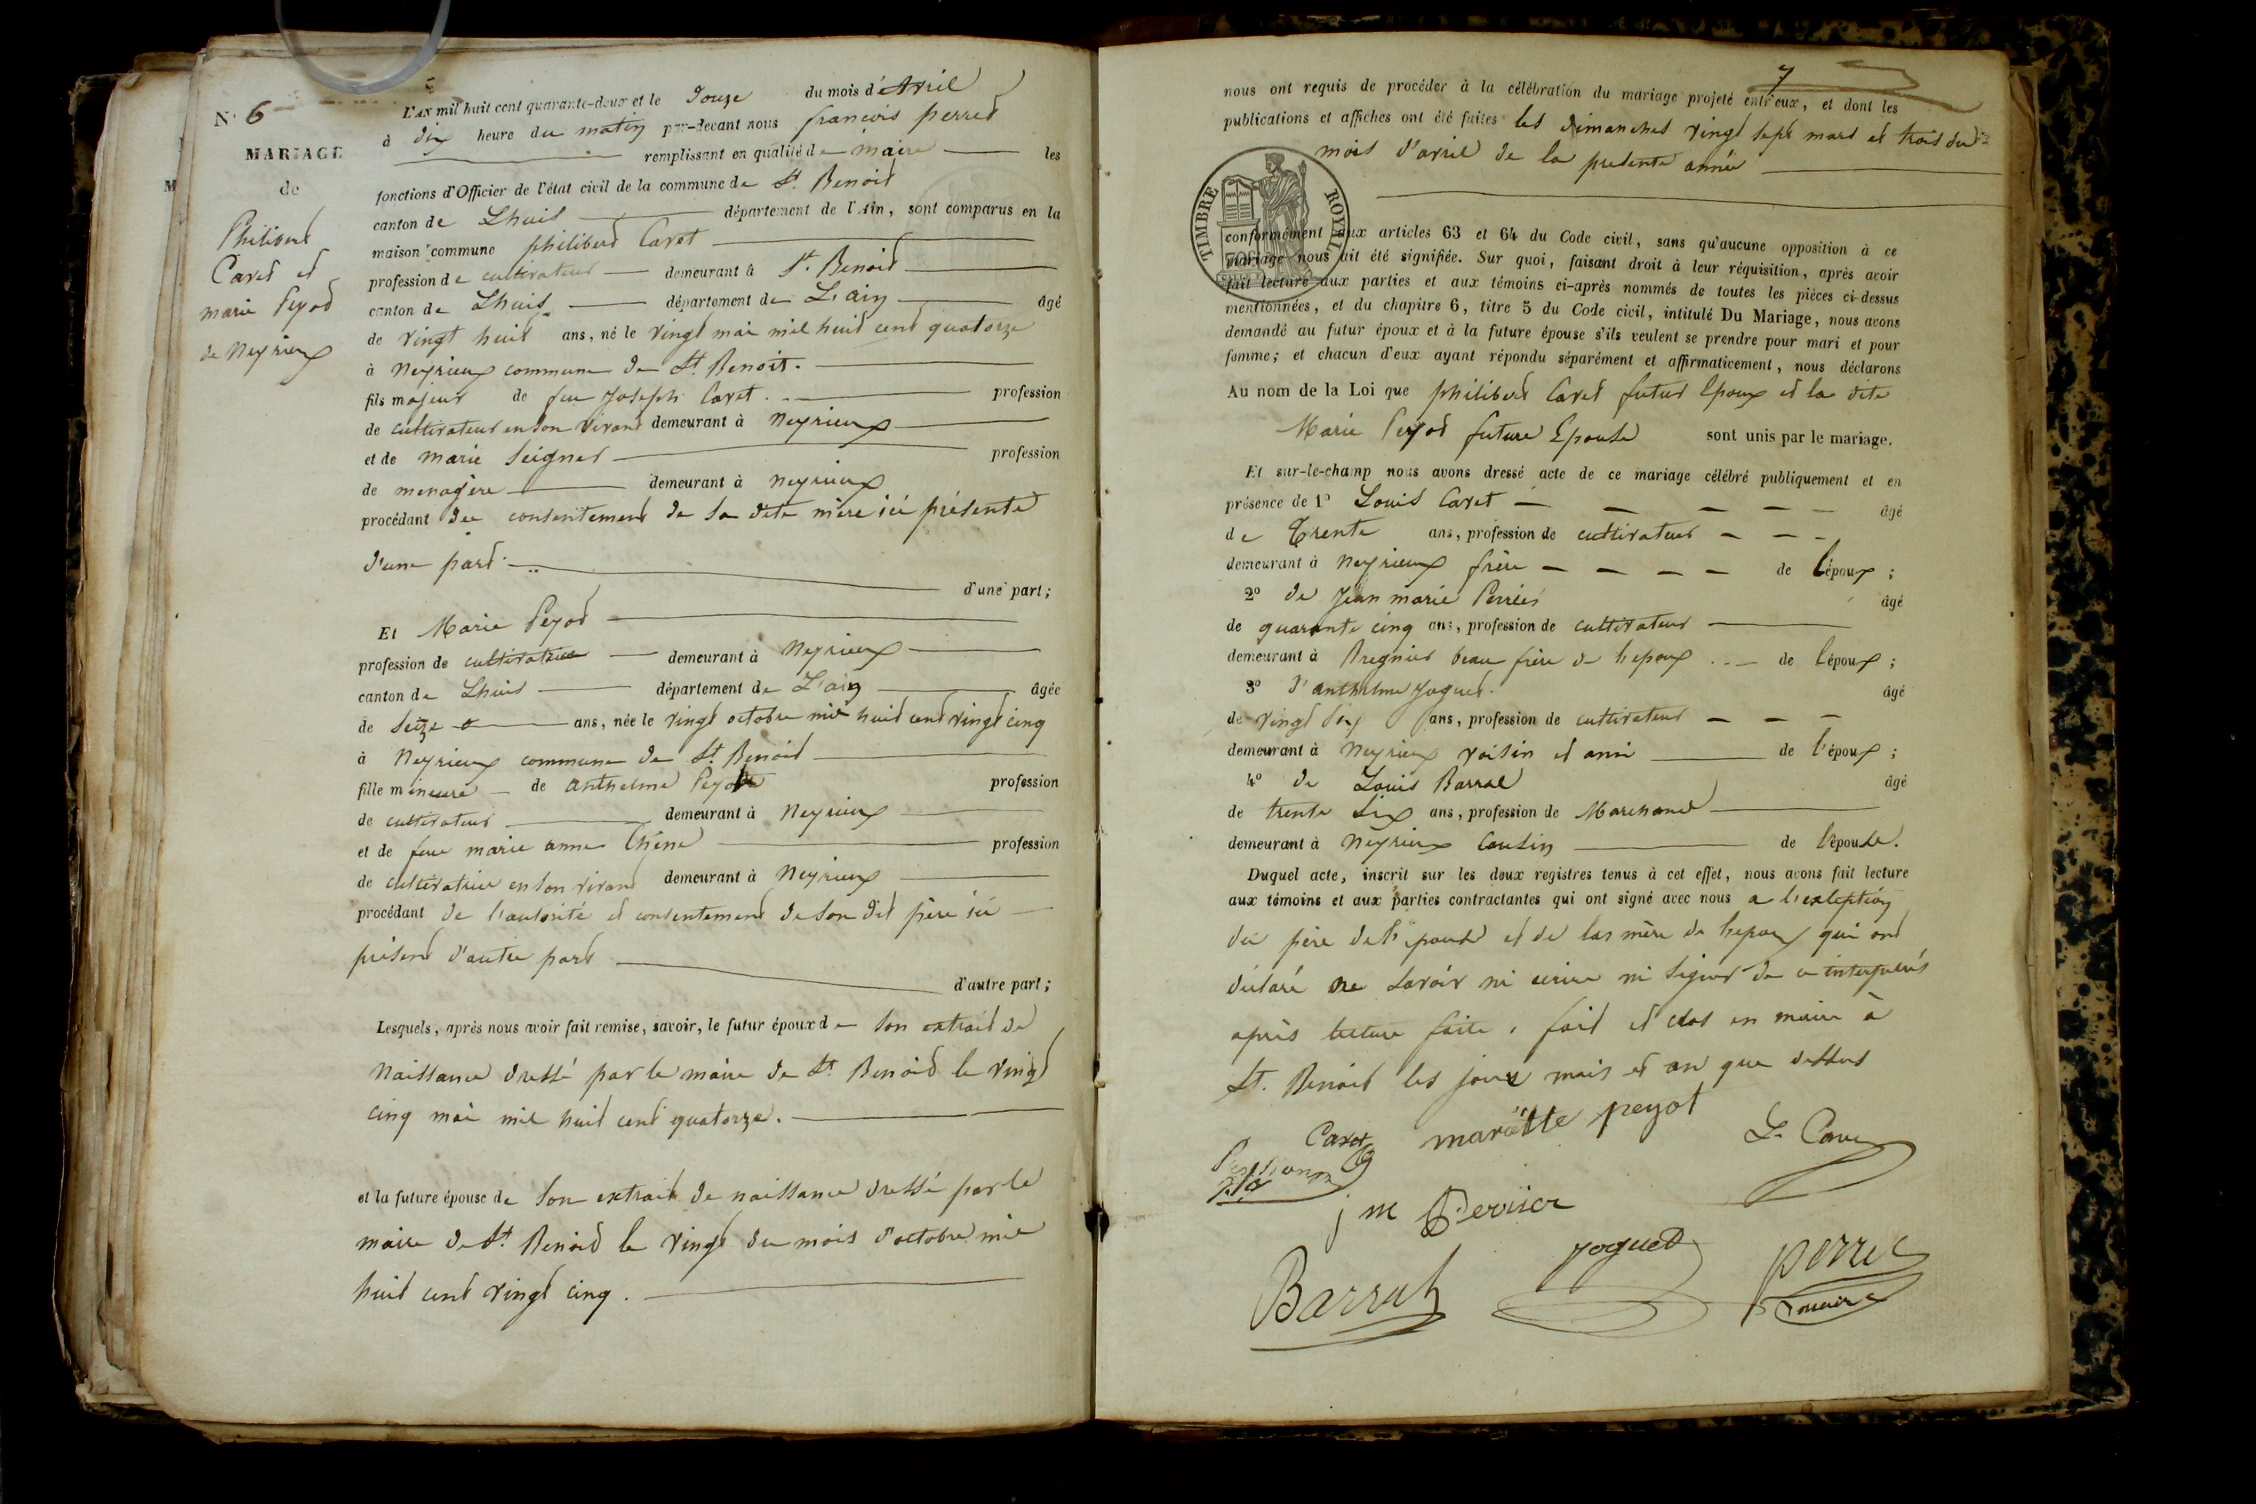 N° 6
MARIAGE
de
Philibert
Caret et
marie Peyod
de Neyrieux
L'AN mil huit cent quarante-deux et le Douze du mois d'Avril
à dix heure du matin par-devant nous françois perret
remplissant en qualité de maire les
fonctions d'Officier de l'état civil de la commune de St. Benoit
canton de Lhuis département de l'Ain, sont comparus en la
maison commune philibert Caret
profession de cultivateur demeurant à St. Benoit
canton de Lhuis département de L'ain âgé
de vingt huit ans, né le vingt mai mil huit cent quatorze
à Neyrieux commune de St. Benoit.
fils majeur de feu Joseph Caret. profession
de cultivateur en son vivant demeurant à Neyrieux
et de marie Seignet profession
de menagère demeurant à neyrieux
procédant du consentement de sa dite mère ici présente
d'une part
d'une part;
Et Marie Peyod
profession de cultivatrice demeurant à Neyrieux
canton de Lhuis département de L'ain âgée
de Seize ans, née le vingt octobre mil huit cent vingt cinq
à Neyrieux commune de St. Benoit
fille mineure de anthelme Peyot profession
de cultivateur demeurant à Neyrieux
et de feue marie anne Chêne profession
de cultivatrice en son vivant demeurant à Neyrieux
procédant de l'autorité et consentement de son dit père ici
présent d'autre part
d'autre part;
Lesquels, après nous avoir fait remise, savoir, le futur époux de son extrait de
Naissance dressé par le maire de St. Benoit le vingt
cinq mai mil huit cent quatorze.
et la future épouse de son extrait de naissance dressé par le
maire de St. Benoit le vingt du mois d'octobre mil
huit cent vingt cinq.
7
nous ont requis de procéder à la célébration du mariage projeté entr'eux, et dont les
publications et affiches ont été faites les dimanches vingt sept mars et trois du
mois d'avril de la presente année
TIMBRE ROYAL
conformément aux articles 63 et 64 du Code civil, sans qu'aucune opposition à ce
mariage nous ait été signifiée. Sur quoi, faisant droit à leur réquisition, après avoir
fait lecture aux parties et aux témoins ci-après nommés de toutes les pièces ci-dessus
mentionnées, et du chapitre 6, titre 5 du Code civil, intitulé Du Mariage, nous avons
demandé au futur époux et à la future épouse s'ils veulent se prendre pour mari et pour
femme; et chacun d'eux ayant répondu séparément et affirmativement, nous déclarons
Au nom de la Loi que philibert Caret futur Epoux et la dite
Marie Peyod future Epouse sont unis par le mariage.
Et sur-le-champ nous avons dressé acte de ce mariage célébré publiquement et en
présence de 1° Louis Caret âgé
de Trente ans, profession de cultivateur
demeurant à Neyrieux frère de l'époux;
2° de Jean marie Perrier âgé
de quarante cinq ans, profession de cultivateur
demeurant à Bregnier beau frère de l'epoux de l'époux;
3° d'anthelme Joguet. âgé
de vingt six ans, profession de cultivateur
demeurant à Neyrieux voisin et ami de l'époux;
4° de Louis Barral âgé
de trente six ans, profession de Marchand
demeurant à Neyrieux Cousin de l'épouse.
Duquel acte, inscrit sur les deux registres tenus à cet effet, nous avons fait lecture
aux témoins et aux parties contractantes qui ont signé avec nous a l'exception
du père de l'epouse et de las mère de l'epoux qui ont
déclaré ne savoir ni ecrire ni signer de ce interpellés
après lecture faite, fait et clos en mairie à
St. Benoit les jour mois et an que dessus
Caret mariëtte peyot L. Caret
j m Perrier
Barral Joguet perret
maire